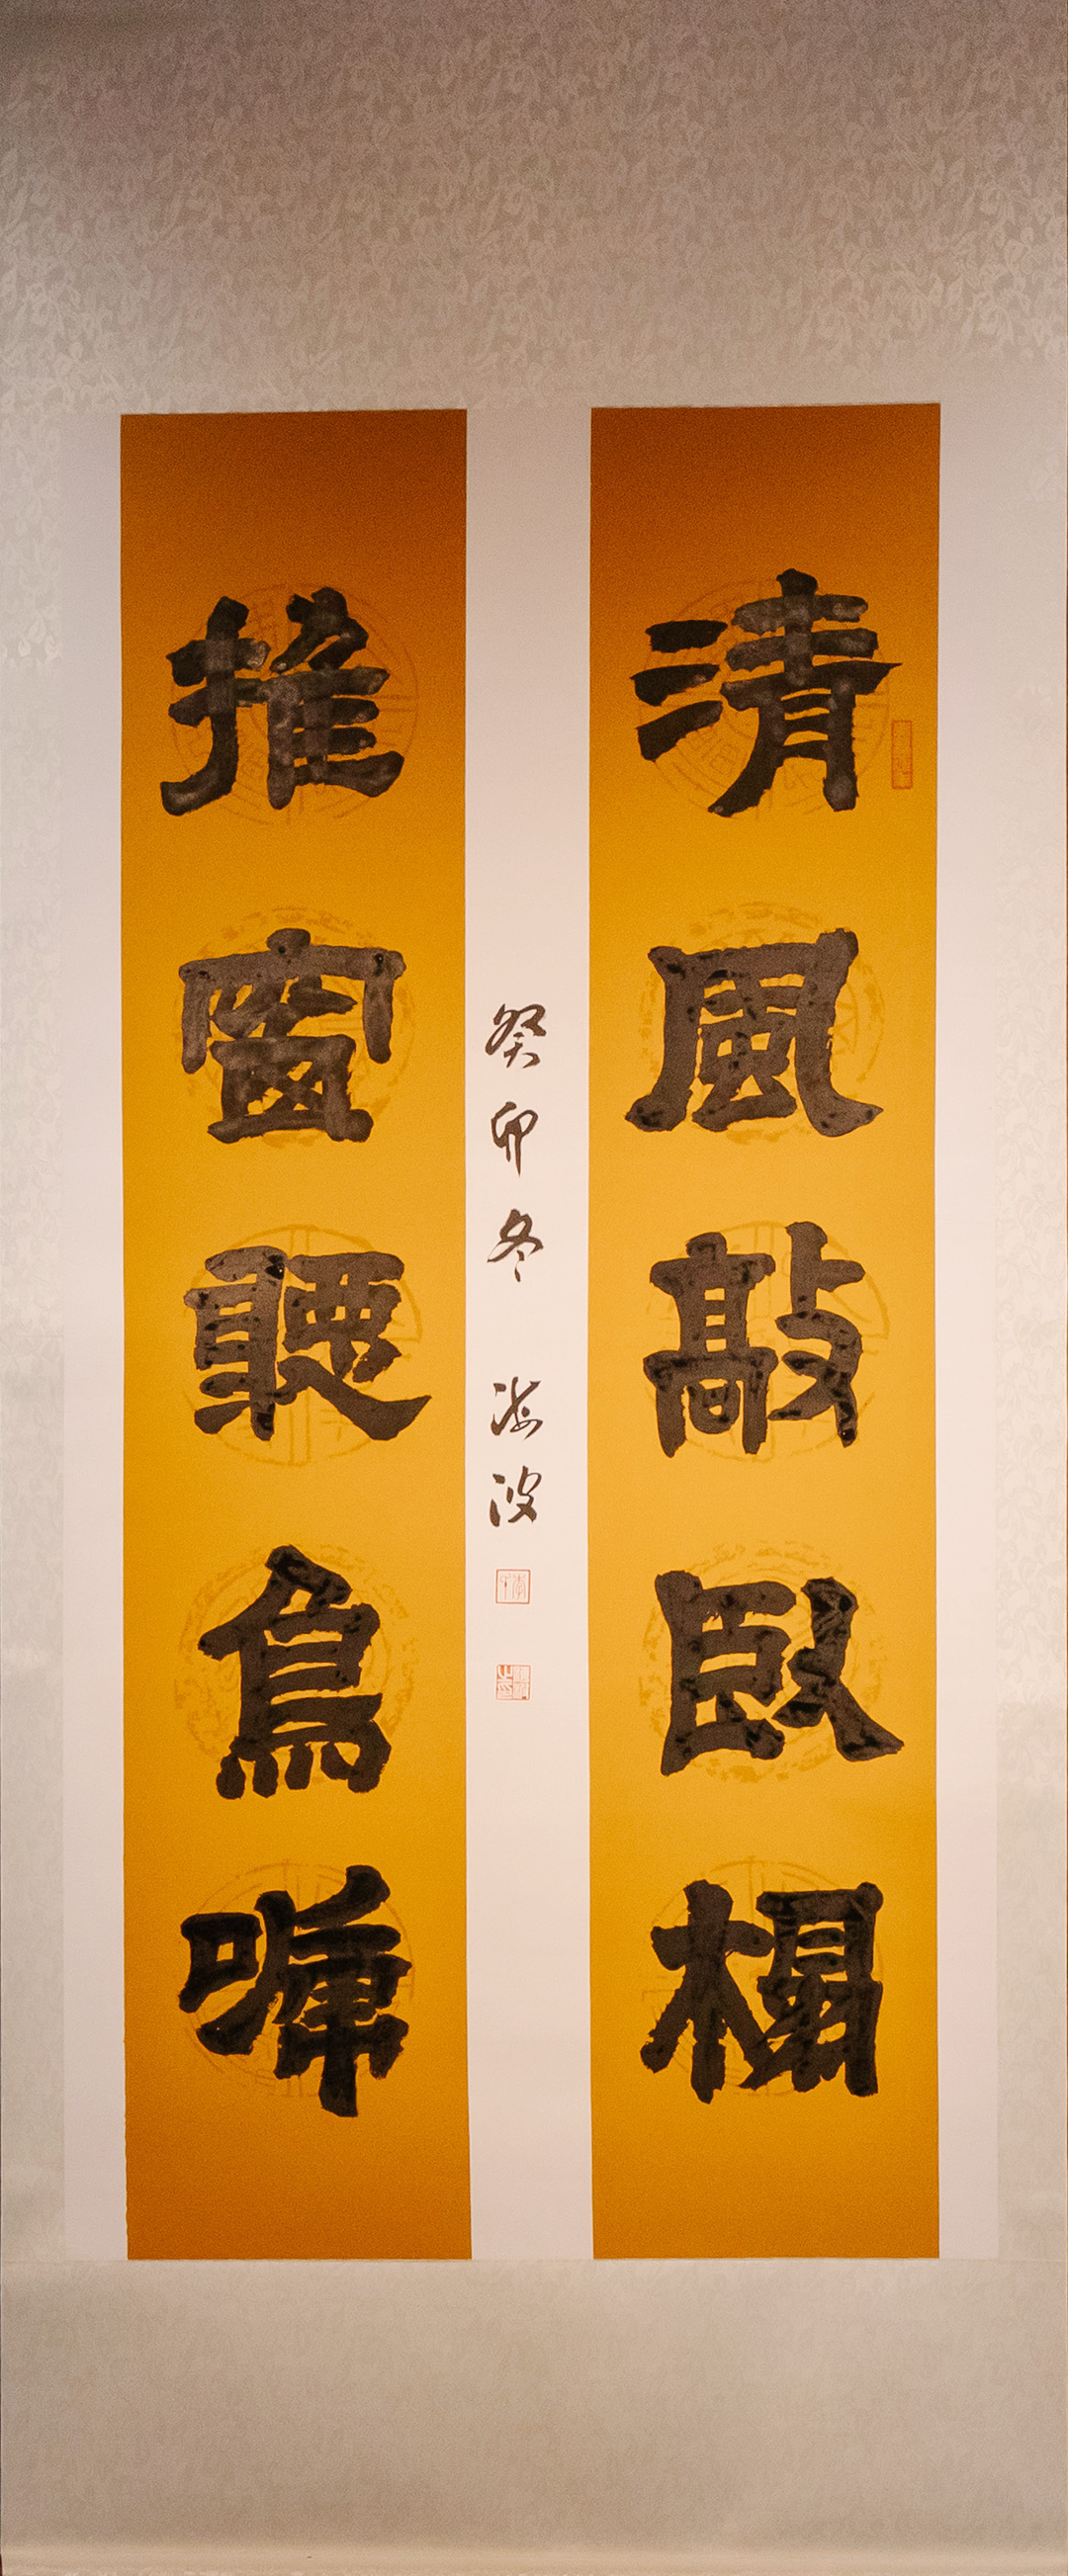 清風敲臥榻
推窗聽鳥啼
癸卯冬 海波